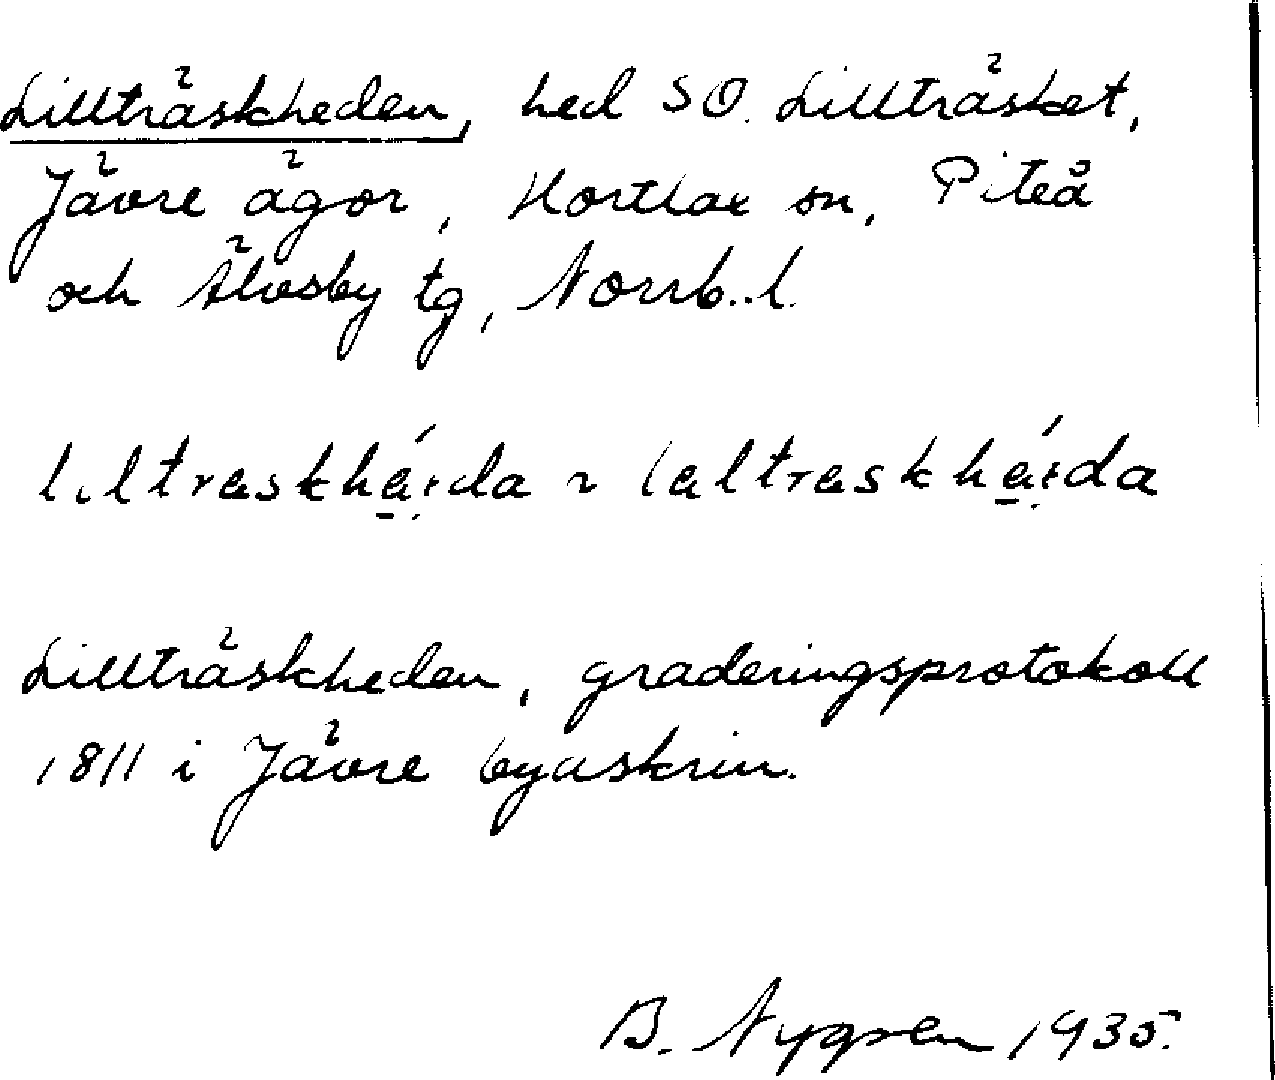 Lillträskheden, hed SO. Lillträsket,
Jävre ägor, Hortlax sn, Piteå
och Älvsby tg, Norrb. l.
liltraskháida ~ laltraskháida
Lillträskheden, graderingsprotokoll
1811 i Jävre byaskrin.
B. Nygren 1935.